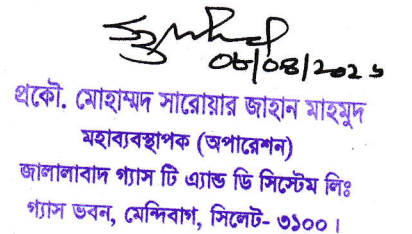 প্রকৌ. মোহাম্মদ সারোয়ার জাহান মাহমুদ
মহাব্যবস্থাপক (অপারেশন)
জালালাবাদ গ্যাস টি এ্যান্ড ডি সিস্টেম লিঃ
গ্যাস ভবন, মেন্দিবাগ, সিলেট- ৩১০০।